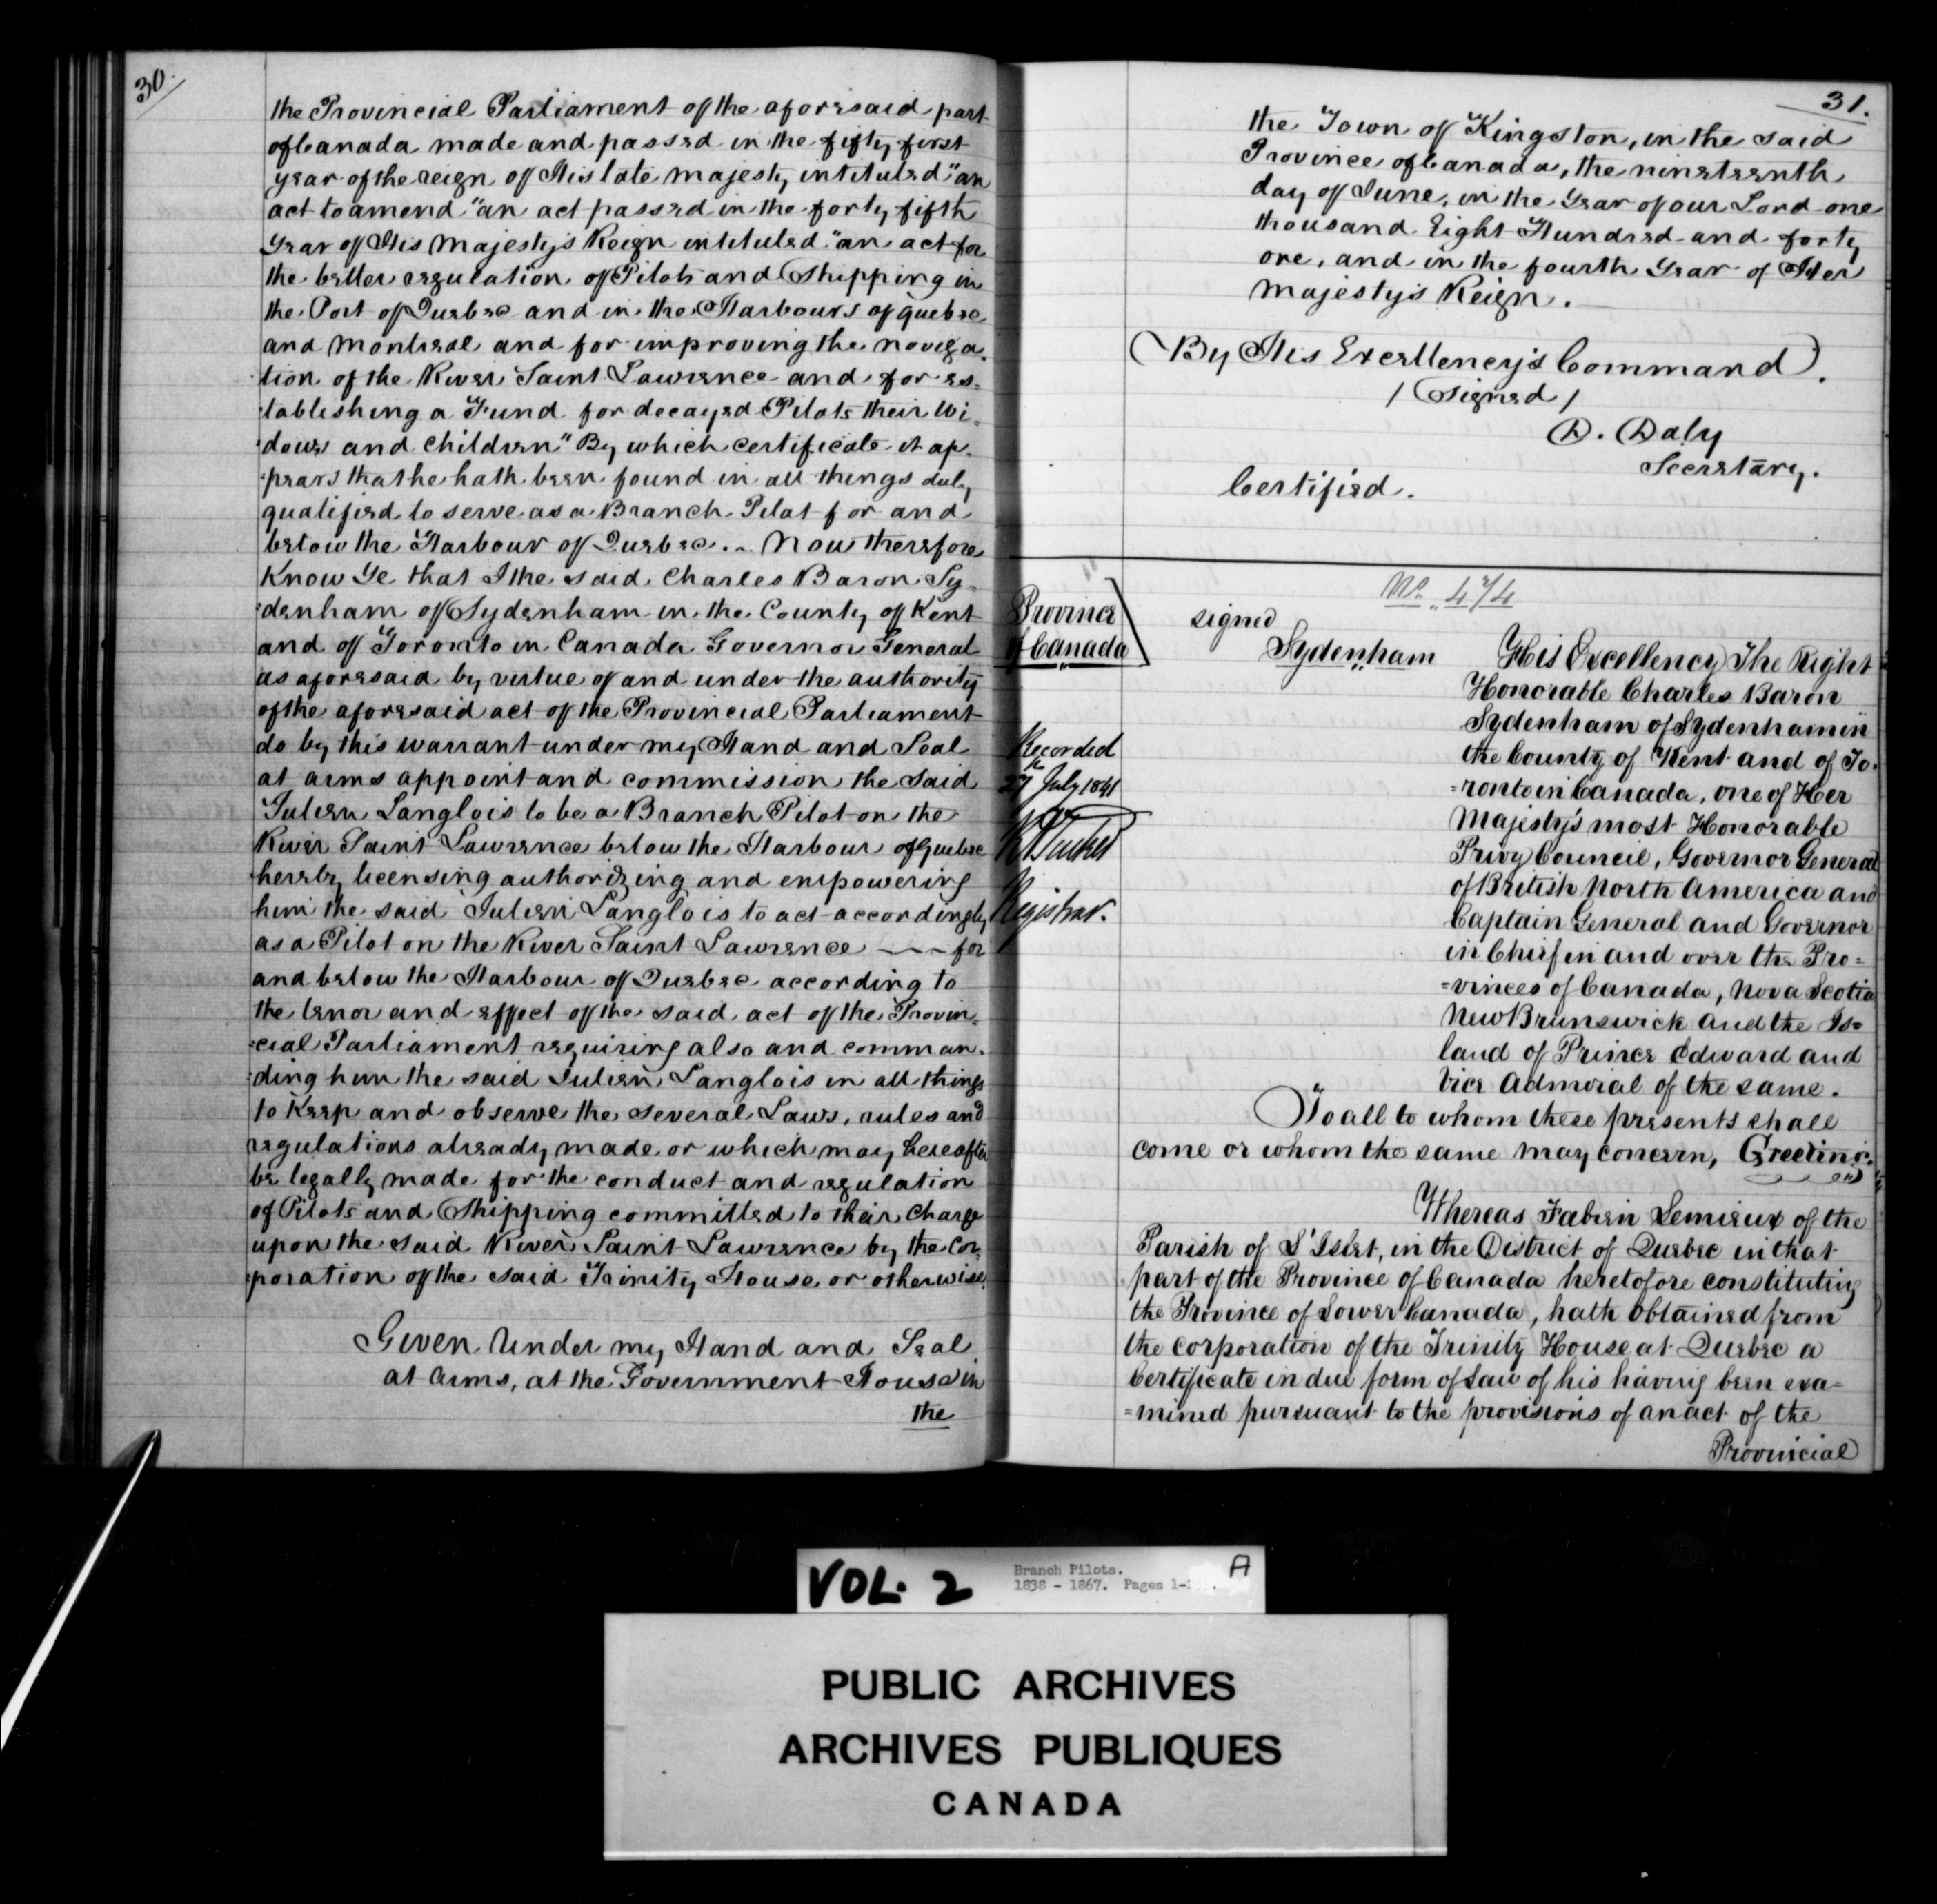 30.
the Provincial Parliament of the aforesaid part
of Canada made and passed in the fifty first
year of the reign of His late majesty intituled "an
act to amend "an act passed in the forty fifth
Year of His Majesty's Reign intituled "an act for
the better regulation of Pilots and Shipping in
the Port of Quebec and in the Harbours of Quebec
and Montreal and for improving the naviga-
tion of the River Saint Lawrence and for es-
tablishing a Fund for decayed Pilots their Wi-
dows and Children" By which certificate it ap-
pears that he hath been found in all things duly
qualified to serve as a Branch Pilot for and
below the Harbour of Quebec .. Now therefore
Know Ye that I the said Charles Baron Sy-
denham of Sydenham in the County of Kent
and of Toronto in Canada Governor General
as aforesaid by virtue of and under the authority
of the aforesaid act of the Provincial Parliament
do by this warrant under my Hand and Seal
at arms appoint and commission the said
Julien Langlois to be a Branch Pilot on the
River Saint Lawrence below the Harbour of Quebec
hereby licensing authorizing and empowering
him the said Julien Langlois to act accordingly
as a Pilot on the River Saint Lawrence —— for
and below the Harbour of Quebec according to
the tenor and effect of the said act of the Provin-
cial Parliament requiring also and comman-
ding him the said Julien Langlois in all things
to Keep and observe the several Laws, rules and
regulations already made or which may hereafter
be legally made for the conduct and regulation
of Pilots and Shipping committed to their Charge
upon the said River Saint Lawrence by the Cor-
poration of the said Trinity House or otherwise.
Given Under my Hand and Seal
at Arms, at the Government House in
the
31.
the Town of Kingston, in the said
Province of Canada, the nineteenth
day of June, in the Year of our Lord one
thousand Eight Hundred and forty
one, and in the fourth Year of Her
Majesty's Reign.
(By His Excellency's Command).
/ Signed /
D. Daly
Secretary.
Certified.
No. 4/4
Province
of Canada
signed
Sydenham
Recorded
27 July 1841
Registrar.
His Excellency The Right
Honorable Charles Baron
Sydenham of Sydenham in
the County of Kent and of To-
=ronto in Canada, one of Her
Majesty's most Honorable
Privy Council, Governor General
of British North America and
Captain General and Governor
in Chief in and over the Pro=
=vinces of Canada, Nova Scotia
New Brunswick and the Is=
land of Prince Edward and
Vice Admiral of the same.
To all to whom these presents shall
come or whom the same may concern, Greeting.
Whereas Fabien Lemieux of the
Parish of L'Islet, in the District of Quebec in that
part of the Province of Canada heretofore constituting
the Province of Lower Canada, hath obtained from
the corporation of the Trinity House at Quebec a
Certificate in due form of Law of his having been exa=
=mined pursuant to the provisions of an act of the
Provincial
VOL. 2
Branch Pilots.
1838 - 1867. Pages 1-
A
PUBLIC ARCHIVES
ARCHIVES PUBLIQUES
CANADA